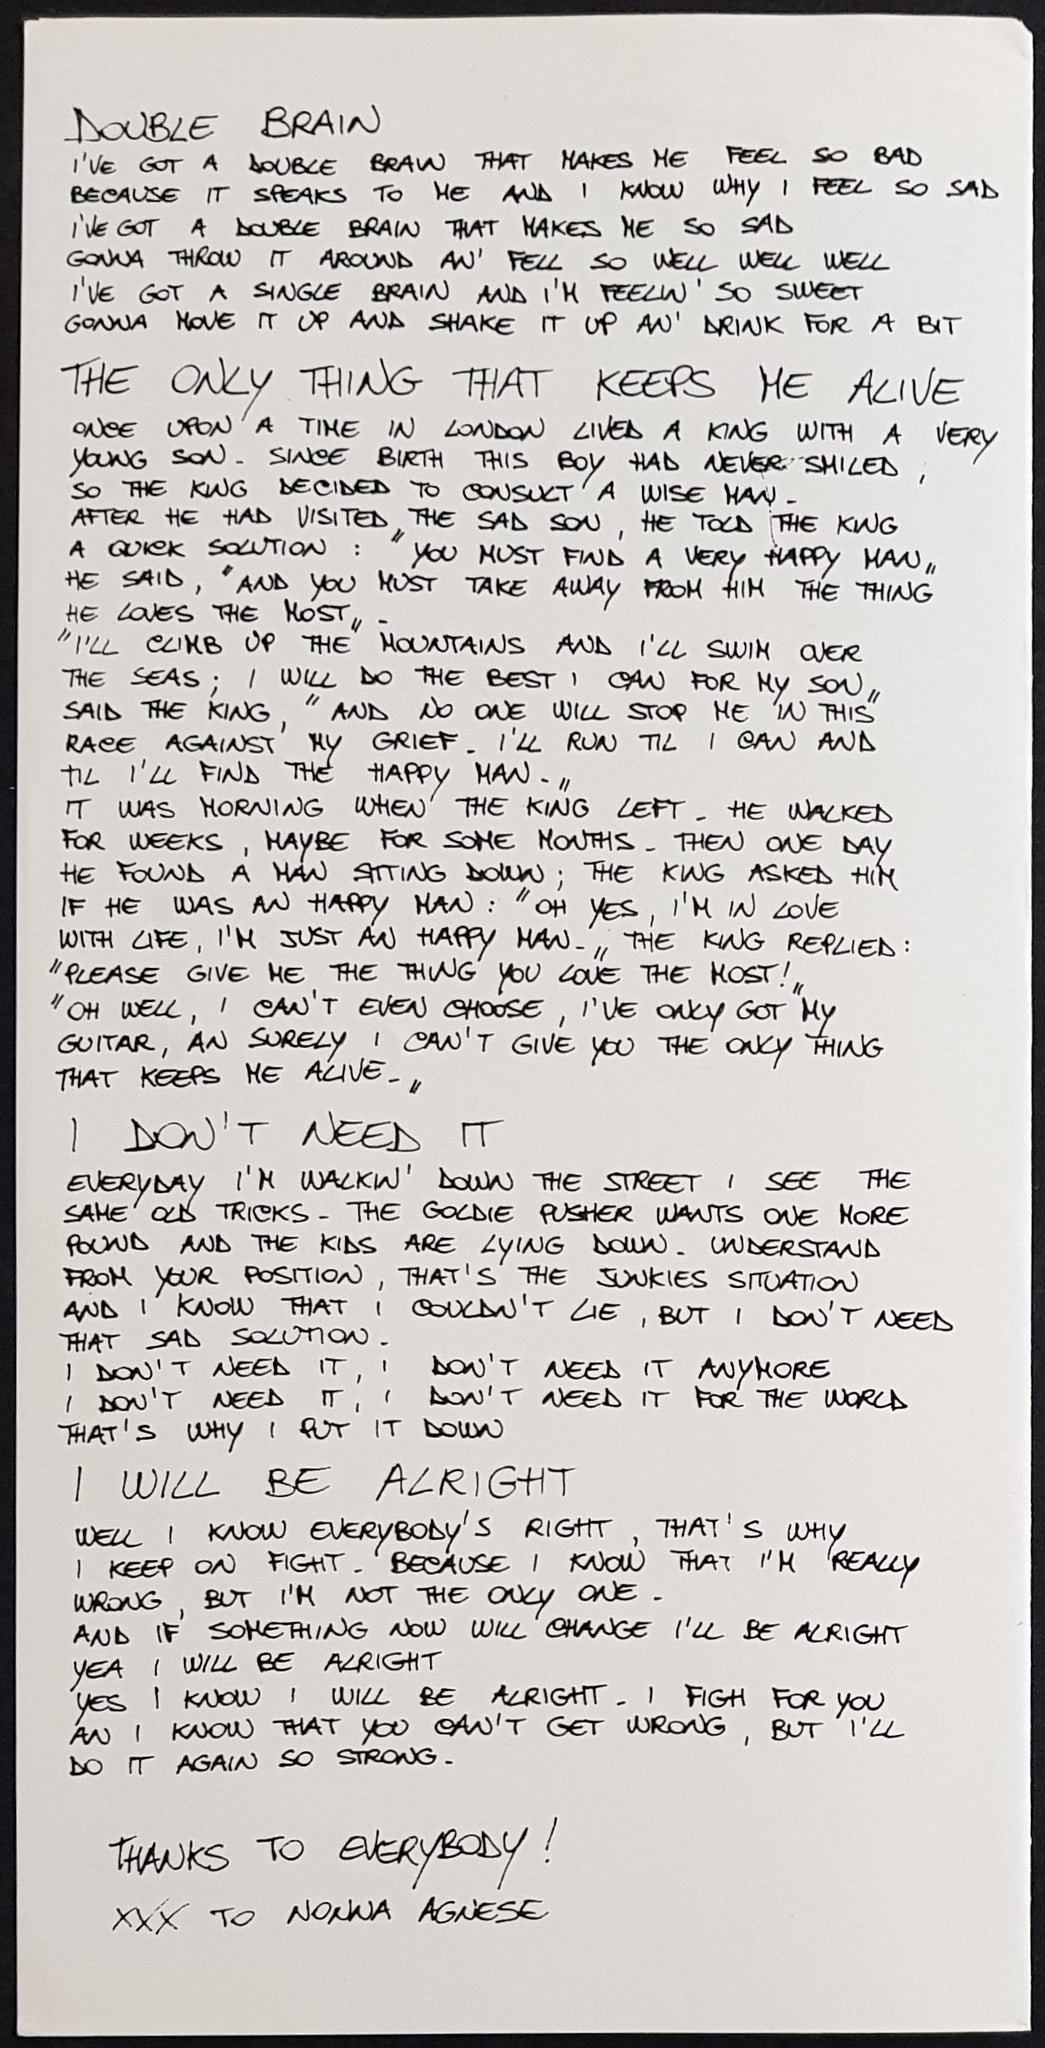 DOUBLE BRAIN
I'VE GOT A DOUBLE BRAIN THAT MAKES ME FEEL SO BAD
BECAUSE IT SPEAKS TO ME AND I KNOW WHY I FEEL SO SAD
I'VE GOT A DOUBLE BRAIN THAT MAKES ME SO SAD
GONNA THROW IT AROUND AN' FELL SO WELL WELL WELL
I'VE GOT A SINGLE BRAIN AND I'M FEELIN' SO SWEET
GONNA MOVE IT UP AND SHAKE IT UP AN' DRINK FOR A BIT
THE ONLY THING THAT KEEPS ME ALIVE
ONCE UPON A TIME IN LONDON LIVED A KING WITH A VERY
YOUNG SON - SINCE BIRTH THIS BOY HAD NEVER SMILED,
SO THE KING DECIDED TO CONSULT A WISE MAN -
AFTER HE HAD VISITED THE SAD SON, HE TOLD THE KING
A QUICK SOLUTION : "YOU MUST FIND A VERY HAPPY MAN„
HE SAID, "AND YOU MUST TAKE AWAY FROM HIM THE THING
HE LOVES THE MOST„ -
"I'LL CLIMB UP THE MOUNTAINS AND I'LL SWIM OVER
THE SEAS; I WILL DO THE BEST I CAN FOR MY SON„
SAID THE KING, "AND NO ONE WILL STOP ME IN THIS
RACE AGAINST MY GRIEF - I'LL RUN TIL I CAN AND
TIL I'LL FIND THE HAPPY MAN -„
IT WAS MORNING WHEN THE KING LEFT - HE WALKED
FOR WEEKS, MAYBE FOR SOME MONTHS - THEN ONE DAY
HE FOUND A MAN SITTING DOWN; THE KING ASKED HIM
IF HE WAS AN HAPPY MAN : "OH YES, I'M IN LOVE
WITH LIFE, I'M JUST AN HAPPY MAN -„ THE KING REPLIED :
"PLEASE GIVE ME THE THING YOU LOVE THE MOST!„
"OH WELL, I CAN'T EVEN CHOOSE, I'VE ONLY GOT MY
GUITAR, AN SURELY I CAN'T GIVE YOU THE ONLY THING
THAT KEEPS ME ALIVE -„
I DON'T NEED IT
EVERYDAY I'M WALKIN' DOWN THE STREET I SEE THE
SAME OLD TRICKS - THE GOLDIE PUSHER WANTS ONE MORE
POUND AND THE KIDS ARE LYING DOWN - UNDERSTAND
FROM YOUR POSITION, THAT'S THE JUNKIES SITUATION
AND I KNOW THAT I COULDN'T LIE, BUT I DON'T NEED
THAT SAD SOLUTION -
I DON'T NEED IT, I DON'T NEED IT ANYMORE
I DON'T NEED IT, I DON'T NEED IT FOR THE WORLD
THAT'S WHY I PUT IT DOWN
I WILL BE ALRIGHT
WELL I KNOW EVERYBODY'S RIGHT, THAT'S WHY
I KEEP ON FIGHT - BECAUSE I KNOW THAT I'M REALLY
WRONG, BUT I'M NOT THE ONLY ONE -
AND IF SOMETHING NOW WILL CHANGE I'LL BE ALRIGHT
YEA I WILL BE ALRIGHT
YES I KNOW I WILL BE ALRIGHT - I FIGH FOR YOU
AN I KNOW THAT YOU CAN'T GET WRONG, BUT I'LL
DO IT AGAIN SO STRONG -
THANKS TO EVERYBODY!
XXX TO NONNA AGNESE